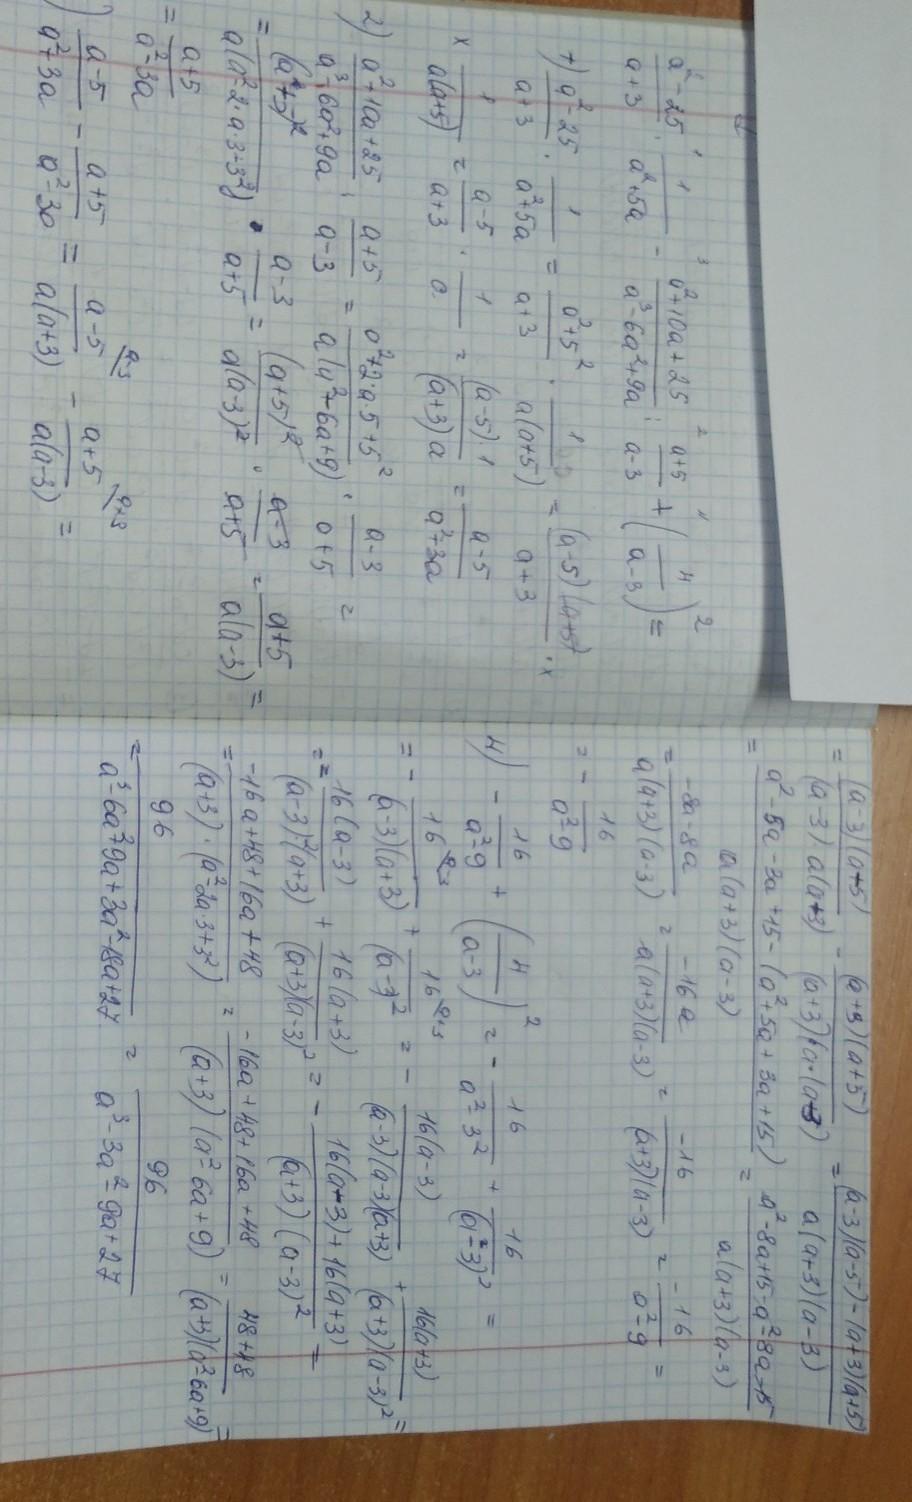 a²-25/a+3 · 1/a²+5a - a²+10a+25/a³-6a²+9a : a+5/a-3 + (4/a-3)² =
1) a²-25/a+3 · 1/a²+5a = a²+5²/a+3 · 1/a(a+5) = (a-5)(a+5)/a+3 ·x
x 1/a(a+5) = a-5/a+3 · 1/a = (a-5)·1/(a+3)a = a-5/a²+3a
2) a²+10a+25/a³-6a²+9a : a+5/a-3 = a²+2·a·5+5²/a(a²-6a+9) · a-3/a+5 =
= (a+5)²/a(a²-2·a·3+3²) · a-3/a+5 = (a+5)²/a(a-3)² · a-3/a+5 = a+5/a(a-3) =
= a+5/a²-3a
) a-5/a²+3a - a+5/a²-3a = a-5/a(a+3) - a+5/a(a-3) =
= (a-3)(a-5)/(a-3)a(a+3) - (a+3)(a+5)/(a+3)·a·(a-3) = (a-3)(a-5)-(a+3)(a+5)/a(a+3)(a-3)
= a²-5a-3a+15-(a²+5a+3a+15)/a(a+3)(a-3) = a²-8a+15-a²-8a-15/a(a+3)(a-3)
= -8a-8a/a(a+3)(a-3) = -16a/a(a+3)(a-3) = -16/(a+3)(a-3) = -16/a²-9 =
= - 16/a²-9
4) - 16/a²-9 + (4/a-3)² = - 16/a²-3² + 16/(a-3)² =
= - 16/(a-3)(a+3) + 16/(a-3)² = - 16(a-3)/(a-3)(a-3)(a+3) + 16(a+3)/(a+3)(a-3)² =
= - 16(a-3)/(a-3)²(a+3) + 16(a+3)/(a+3)(a-3)² = - 16(a-3)+16(a+3)/(a+3)(a-3)² =
= -16a+48+16a+48/(a+3)·(a²-2a·3+3²) = -16a+48+16a+48/(a+3)(a²-6a+9) = 48+48/(a+3)(a²-6a+9) =
= 96/a³-6a²+9a+3a²-18a+27 = 96/a³-3a²-9a+27